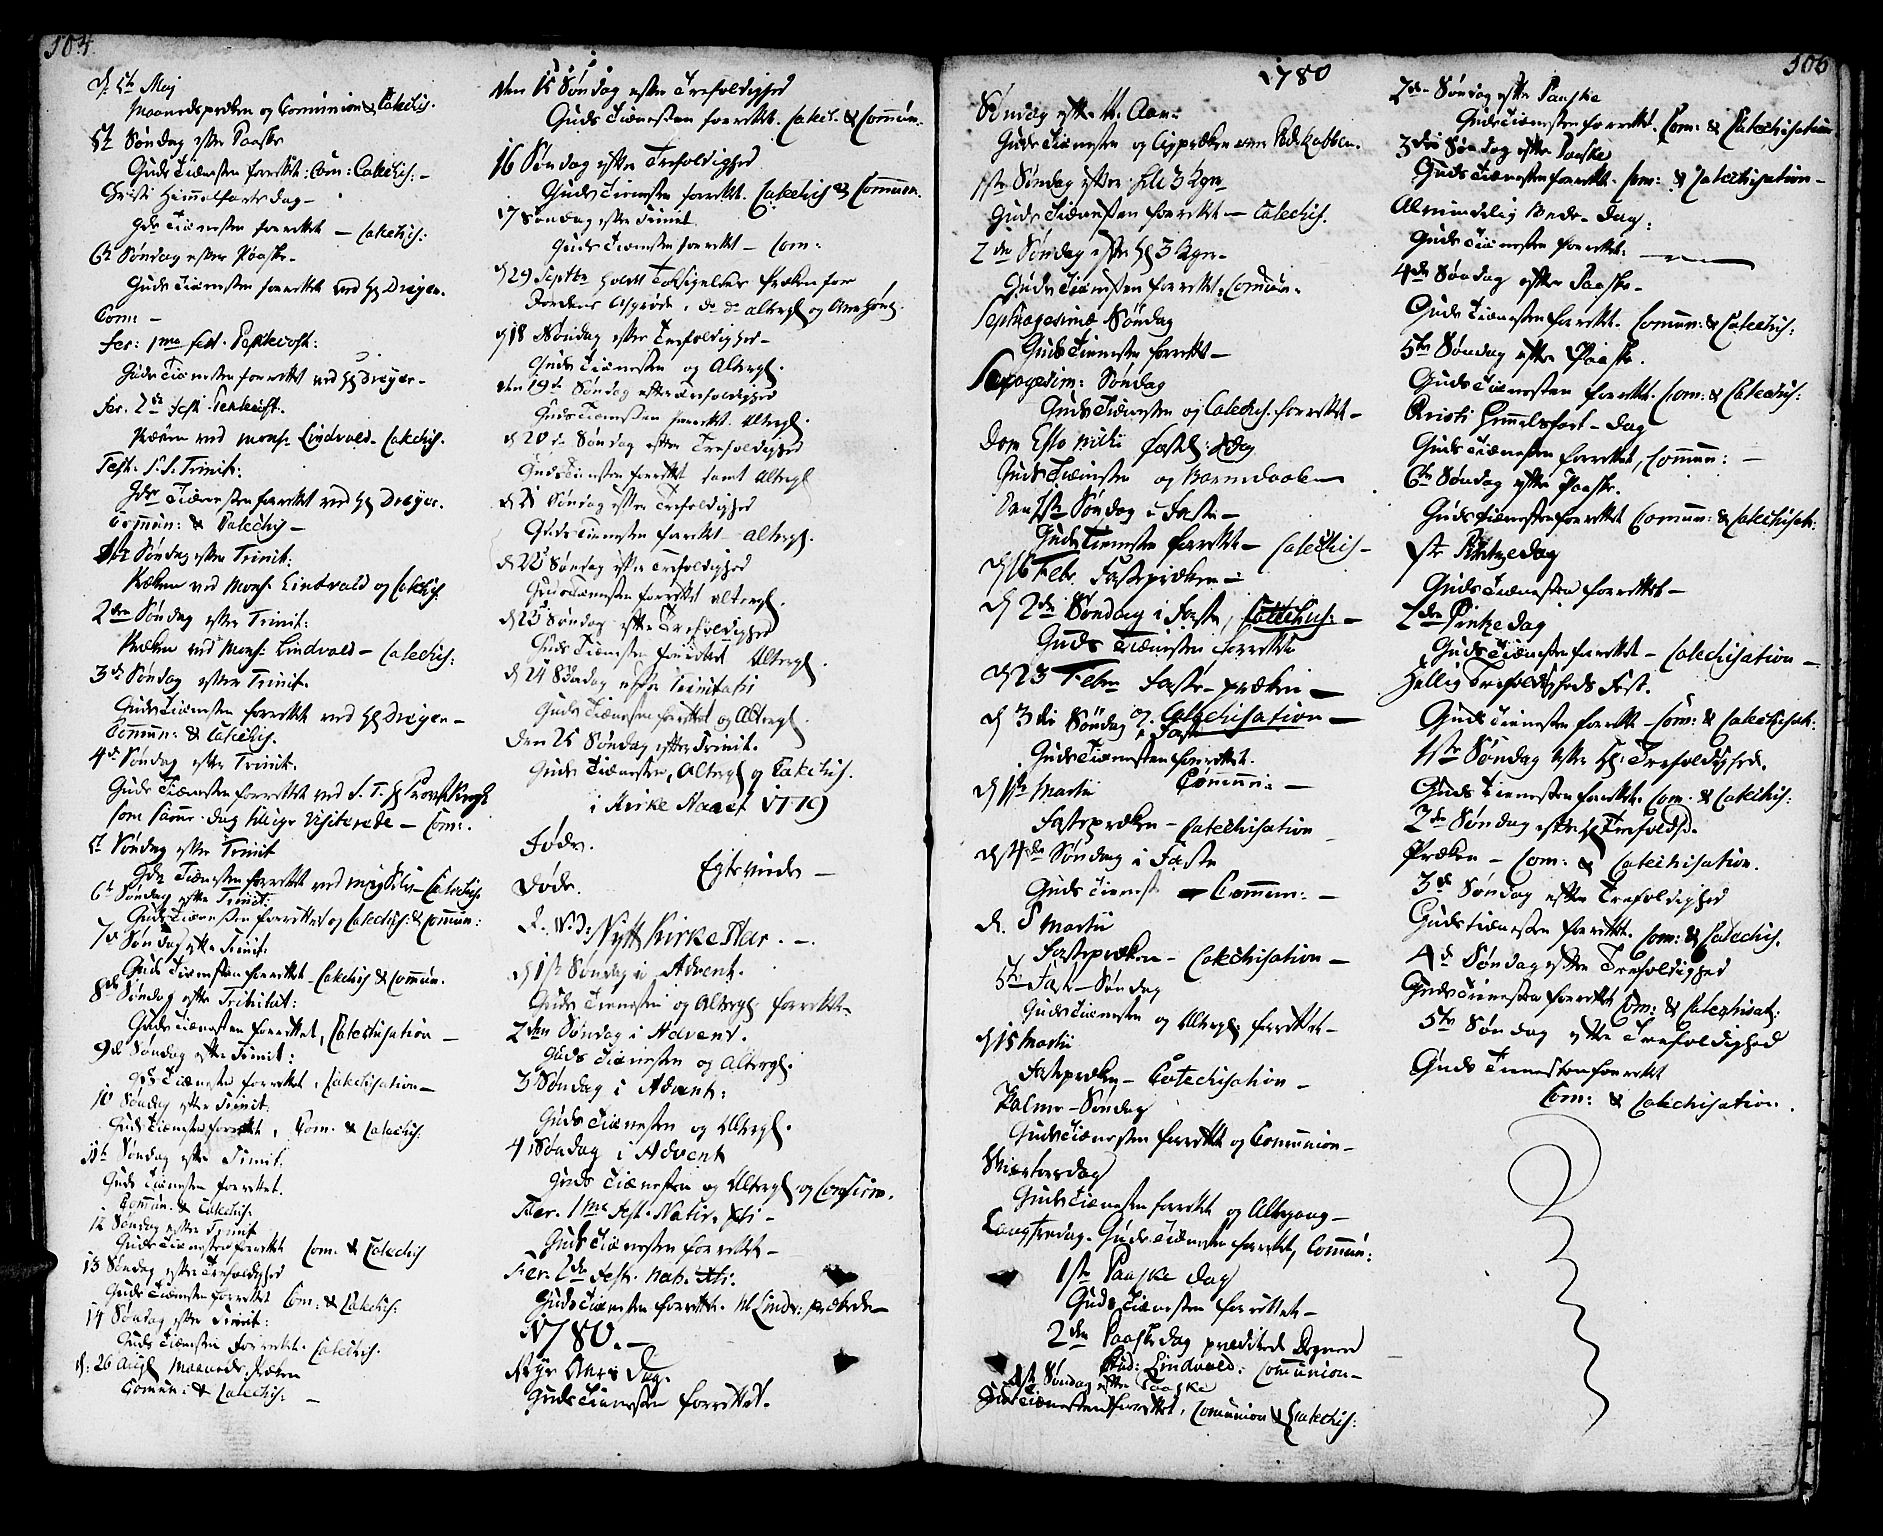 504.
d: 5t Maj
Maanedspræken og Communion & Catechis.
5t Søndag efter Paaske
Guds Tiænesten forrettet: Com: Catechis: –
Christi Himmelfarts dag –
Gds Tiænesten forrettet – Catechis:
6te Søndag efter Paaske –
Guds Tiænesten forrettet ved Hr Dreyer.
Com: –
Fer: 1ma fest. Pentecost:
Guds Tiænesten forrettet ved Hr Dreyer –
Fer. 2da fest Pentecost.
Præken ved Mons: Lindvald – Catechis.
Fest: S.S. Trinit:
Gds Tiænesten forrettet ved Hr Dreyer.
Commun: & Catechis –
1ste Søndag efter Trinit:
Præken ved Mons: Lindvald og Catechis:
2den Søndag efter Trinit:
Præken ved Mons: Lindvald – Catechis:
3die Søndag efter Trinit.
Guds Tiænesten forrettet ved Hr Dreyer –
Commun: & Catechis.
4de Søndag efter Trinit.
Guds Tiænesten forrettet ved S. T. Hr Provst Krogh
som samme dag tillige Visiterede – Com:.
5t Søndag efter Trinit
Gds Tiænesten forrettet ved mig Selv – Catechis
6te Søndag efter Trinit:
Guds Tiænesten forrettet og Catechis: & Commun:
7de Søndag efter Trinit.
Guds Tiænesten forrettet – Catechis & Commun.
8de Søndag efter Trinitat:
Guds Tiænesten forrettet, Catechisation –
9de Søndag efter Trinit:
Gds Tiænesten forrettet, Catechisation –
10 Søndag efter Trinit.
Guds Tiænesten forrettet, Com. & Catechis:
11te Søndag efter Trinit.
Guds Tiænesten forrettet.
Commun. & Catechis:
12 Søndag efter Trinit
Guds Tiænesten forrettet Com. & Catechis
13 Søndag efter Trefoldighed
Guds Tiænesten forrettet Com: & Catechis:
14 Søndag efter Trinit:
Guds Tiænesten forrettet. Catechis.
d: 26 Aug Maaneds Præken
Commun: & Catechis: –
den 15 Søndag efter Trefoldighed
Guds Tiænesten forrettet. Catec. & Commun:
16 Søndag efter Trefoldighed
Guds Tiænesten forrettet. Catechis & Commun.
17 Søndag efter Trinit
Guds Tiænesten forrettet – Com:
d 29 Septbr holdt Taksigelses Præken for
Jordens Afgrøde, Altergl og
d 18 Søndag efter Trefoldighed –
Guds Tiænesten og Altergl.
den 19de Søndag efter Trefoldighed
Guds Tiænesten forrettet. Altergl.
d 20de Søndag efter Trefoldighed
Guds Tiænesten forrettet samt Altergl
d 21 Søndag efter Trefoldighed
Guds Tiænesten forrettet – Altergl.
d 22 Søndag efter Trefoldighed
Guds Tiænesten forrettet Altergl.
d 23 Søndag efter Trefoldighed
Guds Tiænesten forrettet Altergl.
d 24 Søndag efter Trinitatis
Guds Tiænesten forrettet og Altergl.
den 25 Søndag efter Trinit.
Guds Tiænesten, Altergl og Catechis.
i Kirke Aaret 1779
Fødde.
Egteviede –
Døde.
Nytt Kirke Aar. –.
d 1ste Søndag i Advent.
Guds Tienesten og Altergl: forrettet –
2den Søndag i Advent.
Guds Tiænesten og Altergl.
3 Søndag i Advent:
Guds Tiænesten og Altergl.
4 Søndag i Advent
Guds Tiænesten og Altergl og Confirm.
Fer. 1ma Fest. Nativ. Xti –
Guds Tiænesten forrettet –
Fer. 2da Fest. Nat. Xti.
Guds Tiænesten forrettet. M Lindv: prækede –
1780. –
Nyt Aars Dag.
Guds Tienesten forrettet.
1780
506
Søndag efter N. Aar:
Guds Tienesten og
1ste Søndag efter Hel: 3 Kgr
Guds Tiænesten forrettet – Catechis.
2den Søndag efter H 3 Kgr –
Guds Tiænesten forrettet, Commun.
Septuagesimæ Søndag
Guds Tienesten forrettet –
Sexagesim: Søndag
Guds Tiænesten og Catechis. forrettet –
Dom Esto mihi Fastel: Sdag
Guds Tiænesten og Barnedaab
Den 1ste Søndag i Faste –
Guds Tienesten forrettet – Catechis –
d 16 Febr. Fastepræken –
d 2den Søndag i Faste, Catechis: –
Guds Tiænesten forrettet
d 23 Febr Faste-præken –
og Catechisation –
d 3die Søndag i Faste
Guds Tiænesten forrettet.
Commun: –
d 1ste Martii
Fastepræken – Catechisation –
d 4de Søndag i Faste
Guds Tienest – Commun: –
d. 8 Martii
Fastepræken – Catechisation –
5te Fast – Søndag
Guds Tiænesten og Altergl: forrettet –
d 15 Martii
Fastepræken – Catechisation –
Palme – Søndag
Guds Tiænesten forrettet og Communion –
Skiærtorsdag
Guds Tiænesten forrettet og Altergang –
Langfredag. Guds Tiænesten forrettet, Commun:
1ste Paaske dag
Guds Tiænesten forrettet –
2den Paaskedag predikede Degnen
Stud: Lindvald: Communion –
1ste Søndag efter Paaske
Guds Tiænesten forrettet, Communion & Catechis:
2den Søndag efter Paaske
Guds Tienesten forrettet. Com: & Catechisation
3die Søndag efter Paaske
Guds Tiænesten forrettet. Com: & Catechisation –
Almindelig Bede-dag:
Guds Tiænesten forrettet. –
4de Søndag efter Paaske –
Guds Tiænesten forrettet. Commun: & Catechis:
5te Søndag efter Paaske.
Guds Tiænesten forrettet. Com: & Catechis:
Kristi Himmelsfart – dag
Guds Tiænesten forrettet, Commun: –
6te Søndag efter Paaske.
Guds Tiænesten forrettet Commun: & Catechisat:
1ste Pintzedag
Guds Tiænesten forrettet –
2den Pintzedag
Guds Tiænesten forrettet – Catechisation –
Hellig Trefoldigheds Fest.
Guds Tienesten forrettet – Com: & Catechisat:
1ste Søndag efter H: Trefoldighed.
Guds Tienesten forrettet. Com. & Catechis:
2den Søndag efter H Trefoldh.
Præken – Com: & Catechisation.
3de Søndag efter Trefoldighed
Guds tienesten forrettet. Com: & Catechis.
4de Søndag efter Trefoldighed
Guds Tienesten forrettet Com: & Catechisat:
5te Søndag efter Trefoldighed
Guds Tienesten forrettet
Com: & Catechisation.